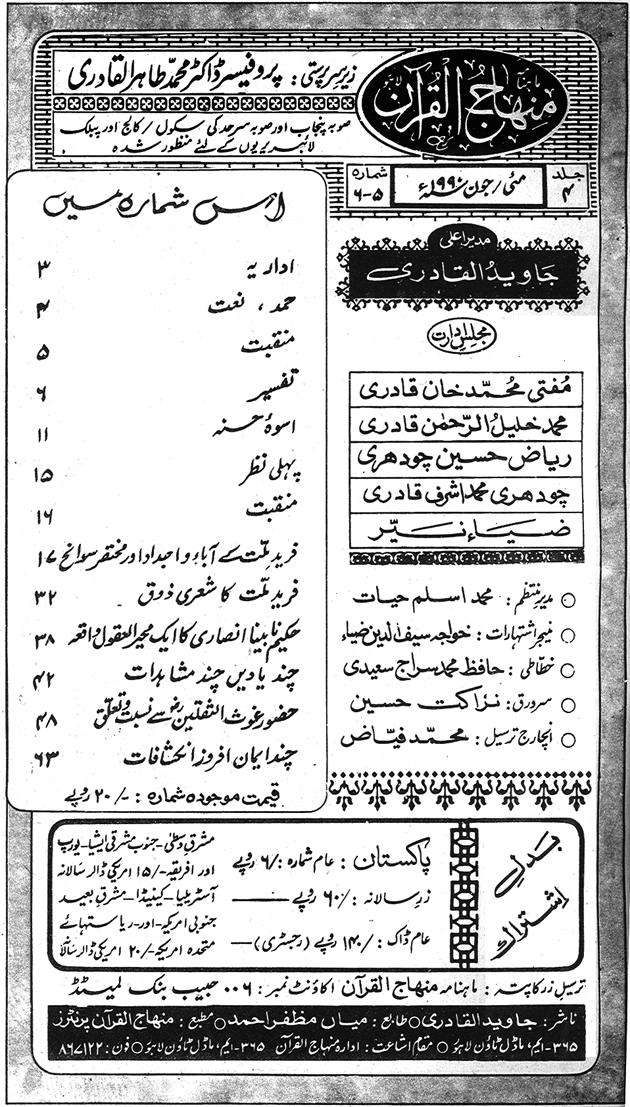 ماہنامہ منہاج القرآن لاہور
زیرِ سرپرستی: پروفیسر ڈاکٹر محمد طاہر القادری
صوبہ پنجاب اور صوبہ سرحد کی سکول / کالج اور پبلک
لائبریریوں کے لئے منظور شدہ
جلد ۴
مئی / جون ۱۹۹۰ء
شمارہ ۵-۶
مدیر اعلیٰ
جاوید القادری
مجلسِ ادارت
مفتی محمد خان قادری
محمد خلیل الرحمٰن قادری
ریاض حسین چودھری
چودھری محمد اشرف قادری
ضیاء نیّر
مدیر منتظم: محمد اسلم حیات
منیجر اشتہارات: خواجہ سیف الدین ضیاء
خطّاطی: حافظ محمد سراج سعیدی
سرورق: نزاکت حسین
انچارج ترسیل: محمد فیّاض
اس شمارہ میں
اداریہ ۳
حمد، نعت ۴
منقبت ۵
تفسیر ۶
اسوۂ حسنہ ۱۱
پہلی نظر ۱۵
منقبت ۱۶
فریدِ ملّت کے آباء و اجداد اور مختصر سوانح ۱۷
فریدِ ملّت کا شعری ذوق ۳۲
حکیم نابینا انصاری کا ایک محیر العقول واقعہ ۳۸
چند یادیں چند مشاہدات ۴۲
حضور غوث الثقلینؓ سے نسبت و تعلق ۴۸
چند ایمان افروز انکشافات ۶۳
قیمت موجودہ شمارہ: -/۲۰ روپے
بدلِ اشتراک
پاکستان: عام شمارہ: -/۶ روپے
زر سالانہ: -/۶۰ روپے
عام ڈاک: -/۱۴۰ روپے (رجسٹری)
مشرق وسطیٰ - جنوب مشرقی ایشیا - یورپ
اور افریقہ -/۱۵ امریکی ڈالر سالانہ
آسٹریلیا - کینیڈا - مشرق بعید
جنوبی امریکہ - اور - ریاستہائے
متحدہ امریکہ -/۲۰ امریکی ڈالر سالانہ
ترسیل زر کا پتہ: ماہنامہ منہاج القرآن اکاؤنٹ نمبر: ۰۰۶ حبیب بنک لمیٹڈ
ناشر: جاوید القادری ○ طابع: میاں مظفر احمد ○ مطبع: منہاج القرآن پرنٹرز
۳۶۵-ایم، ماڈل ٹاؤن لاہور ○ مقام اشاعت: ادارہ منہاج القرآن ۳۶۵-ایم، ماڈل ٹاؤن لاہور ○ فون: ۸۶۷۱۲۲